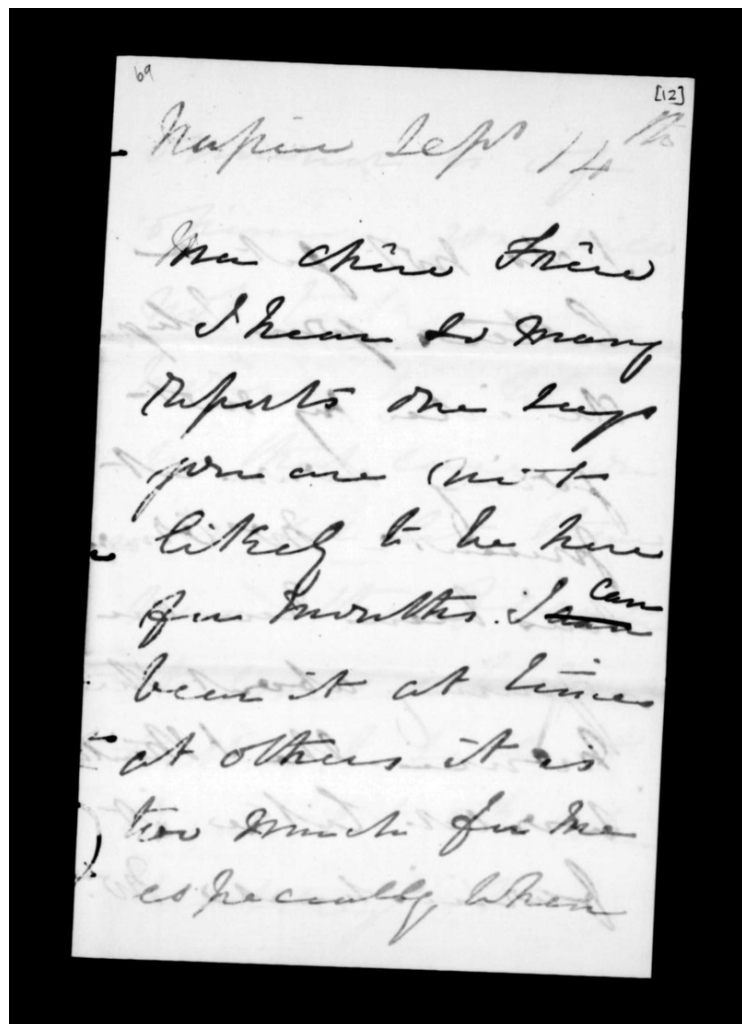 69
[12]
Napier Sept 14th
Mon chère Frère
I hear so many
reports one says
you are not
likely to be here
for months. I can
bear it at times
at others it is
too much for me
especially when